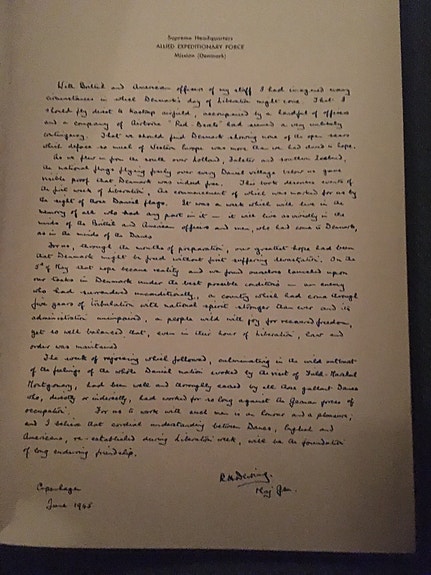 Supreme Headquarters
ALLIED EXPEDITIONARY FORCE
Mission (Denmark)
With British and American officers of my staff I had imagined many
circumstances in which Denmark's day of Liberation might come. That I
should fly direct to Kastrup airfield, accompanied by a handful of officers
and a company of Airborne "Red-Berets" had seemed a very unlikely
contingency. That we should find Denmark showing none of the open scars
which deface so much of Western Europe was more than we had dared to hope.
As we flew in from the south over Holland, Falster and southern Zealand,
the national flags flying freely over every Danish village below us gave
visible proof that Denmark was indeed free. This book describes events of
the first week of Liberation, the commencement of which was marked for us by the
sight of those Danish flags. It was a week which will live in the
memory of all who had any part in it — it will live as vividly in the
minds of the British and American officers and men, who had come to Denmark,
as in the minds of the Danes
For us, through the months of preparation, our greatest hopes had been
that Denmark might be freed without first suffering devastation. On the
5th of May that hope became reality and we found ourselves launched upon
our tasks in Denmark under the best possible conditions — an enemy
who had surrendered unconditionally, a country which had come through
five years of tribulation with national spirit stronger than ever and its
administration unimpaired, a people wild with joy for regained freedom,
yet so well balanced that, even in their hour of Liberation, law and
order was maintained
The week of rejoicing which followed, culminating in the wild outburst
of the feelings of the whole Danish nation evoked by the visit of Field-Marshal
Montgomery, had been well and thoroughly earned by all those gallant Danes
who, directly or indirectly, had worked for so long against the German forces of
occupation. For us to work with such men is an honour and a pleasure;
and I believe that cordial understanding between Danes, English and
Americans, re-established during Liberation week, will be the foundation
of long enduring friendship.
R.H. Dewing.
Maj Gen.
Copenhagen
June 1945